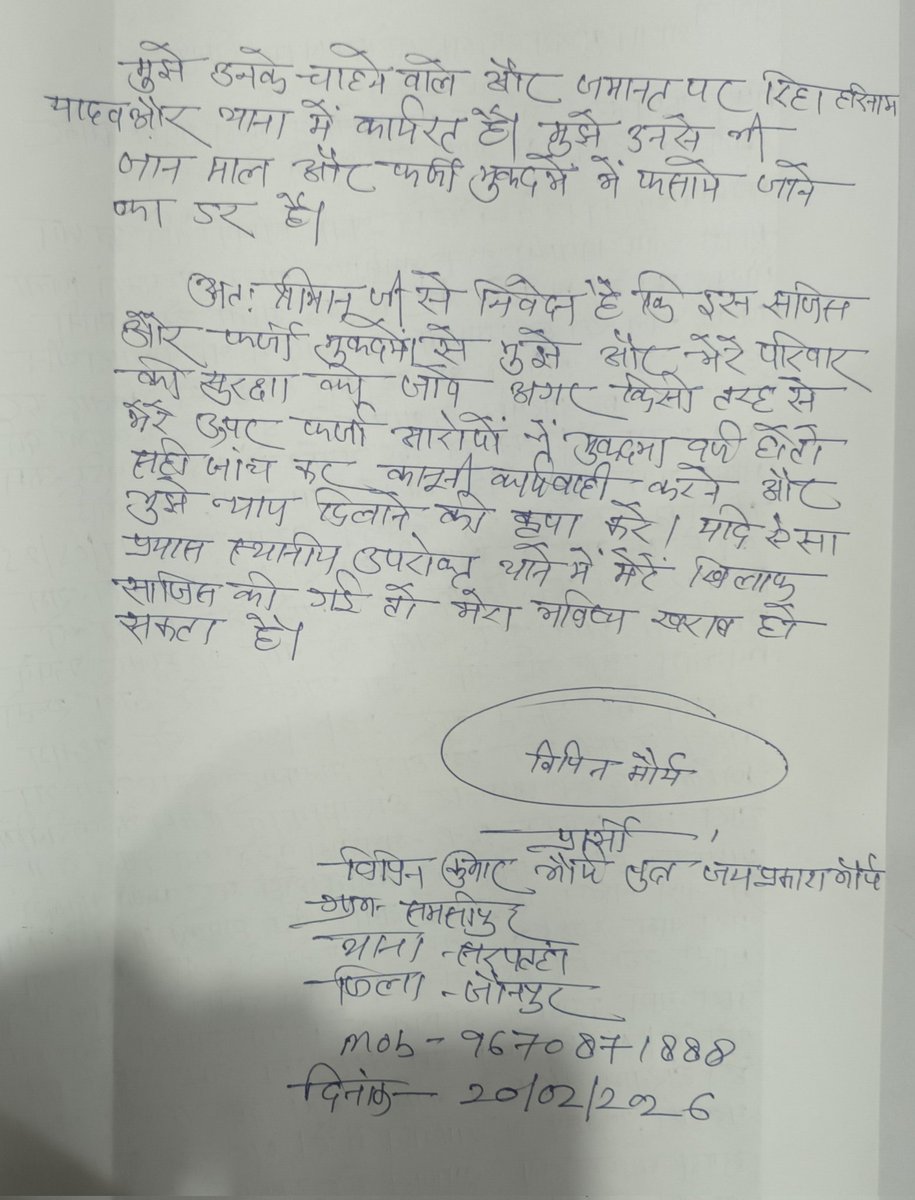 मुझे उनके चाहने वाले और जमानत पर रिहा हरिनाम
यादव और थाना में कार्यरत है। मुझे उनसे भी
जान माल और फर्जी मुकदमें में फसाये जाने
का डर है।
अतः श्रीमान् जी से निवेदन है कि इस साजिस
और फर्जी मुकदमें से मुझे और मेरे परिवार
की सुरक्षा की जाये अगर किसी तरह से
मेरे उपर फर्जी आरोपों में मुकदमा दर्ज हो तो
सही जांच कर कानूनी कार्यवाही करने और
मुझे न्याय दिलाने की कृपा करें। यदि ऐसा
प्रयास स्थानीय उपरोक्त थाने में मेरे खिलाफ
साजिस की गई तो मेरा भविष्य खराब हो
सकता है।
विपिन मौर्य
प्रार्थी
विपिन कुमार मौर्य पुत्र जयप्रकाश मौर्य
ग्राम- समसीपुर
थाना - सरपतहां
जिला - जौनपुर
mob - 9670871888
दिनांक - 20/02/2026